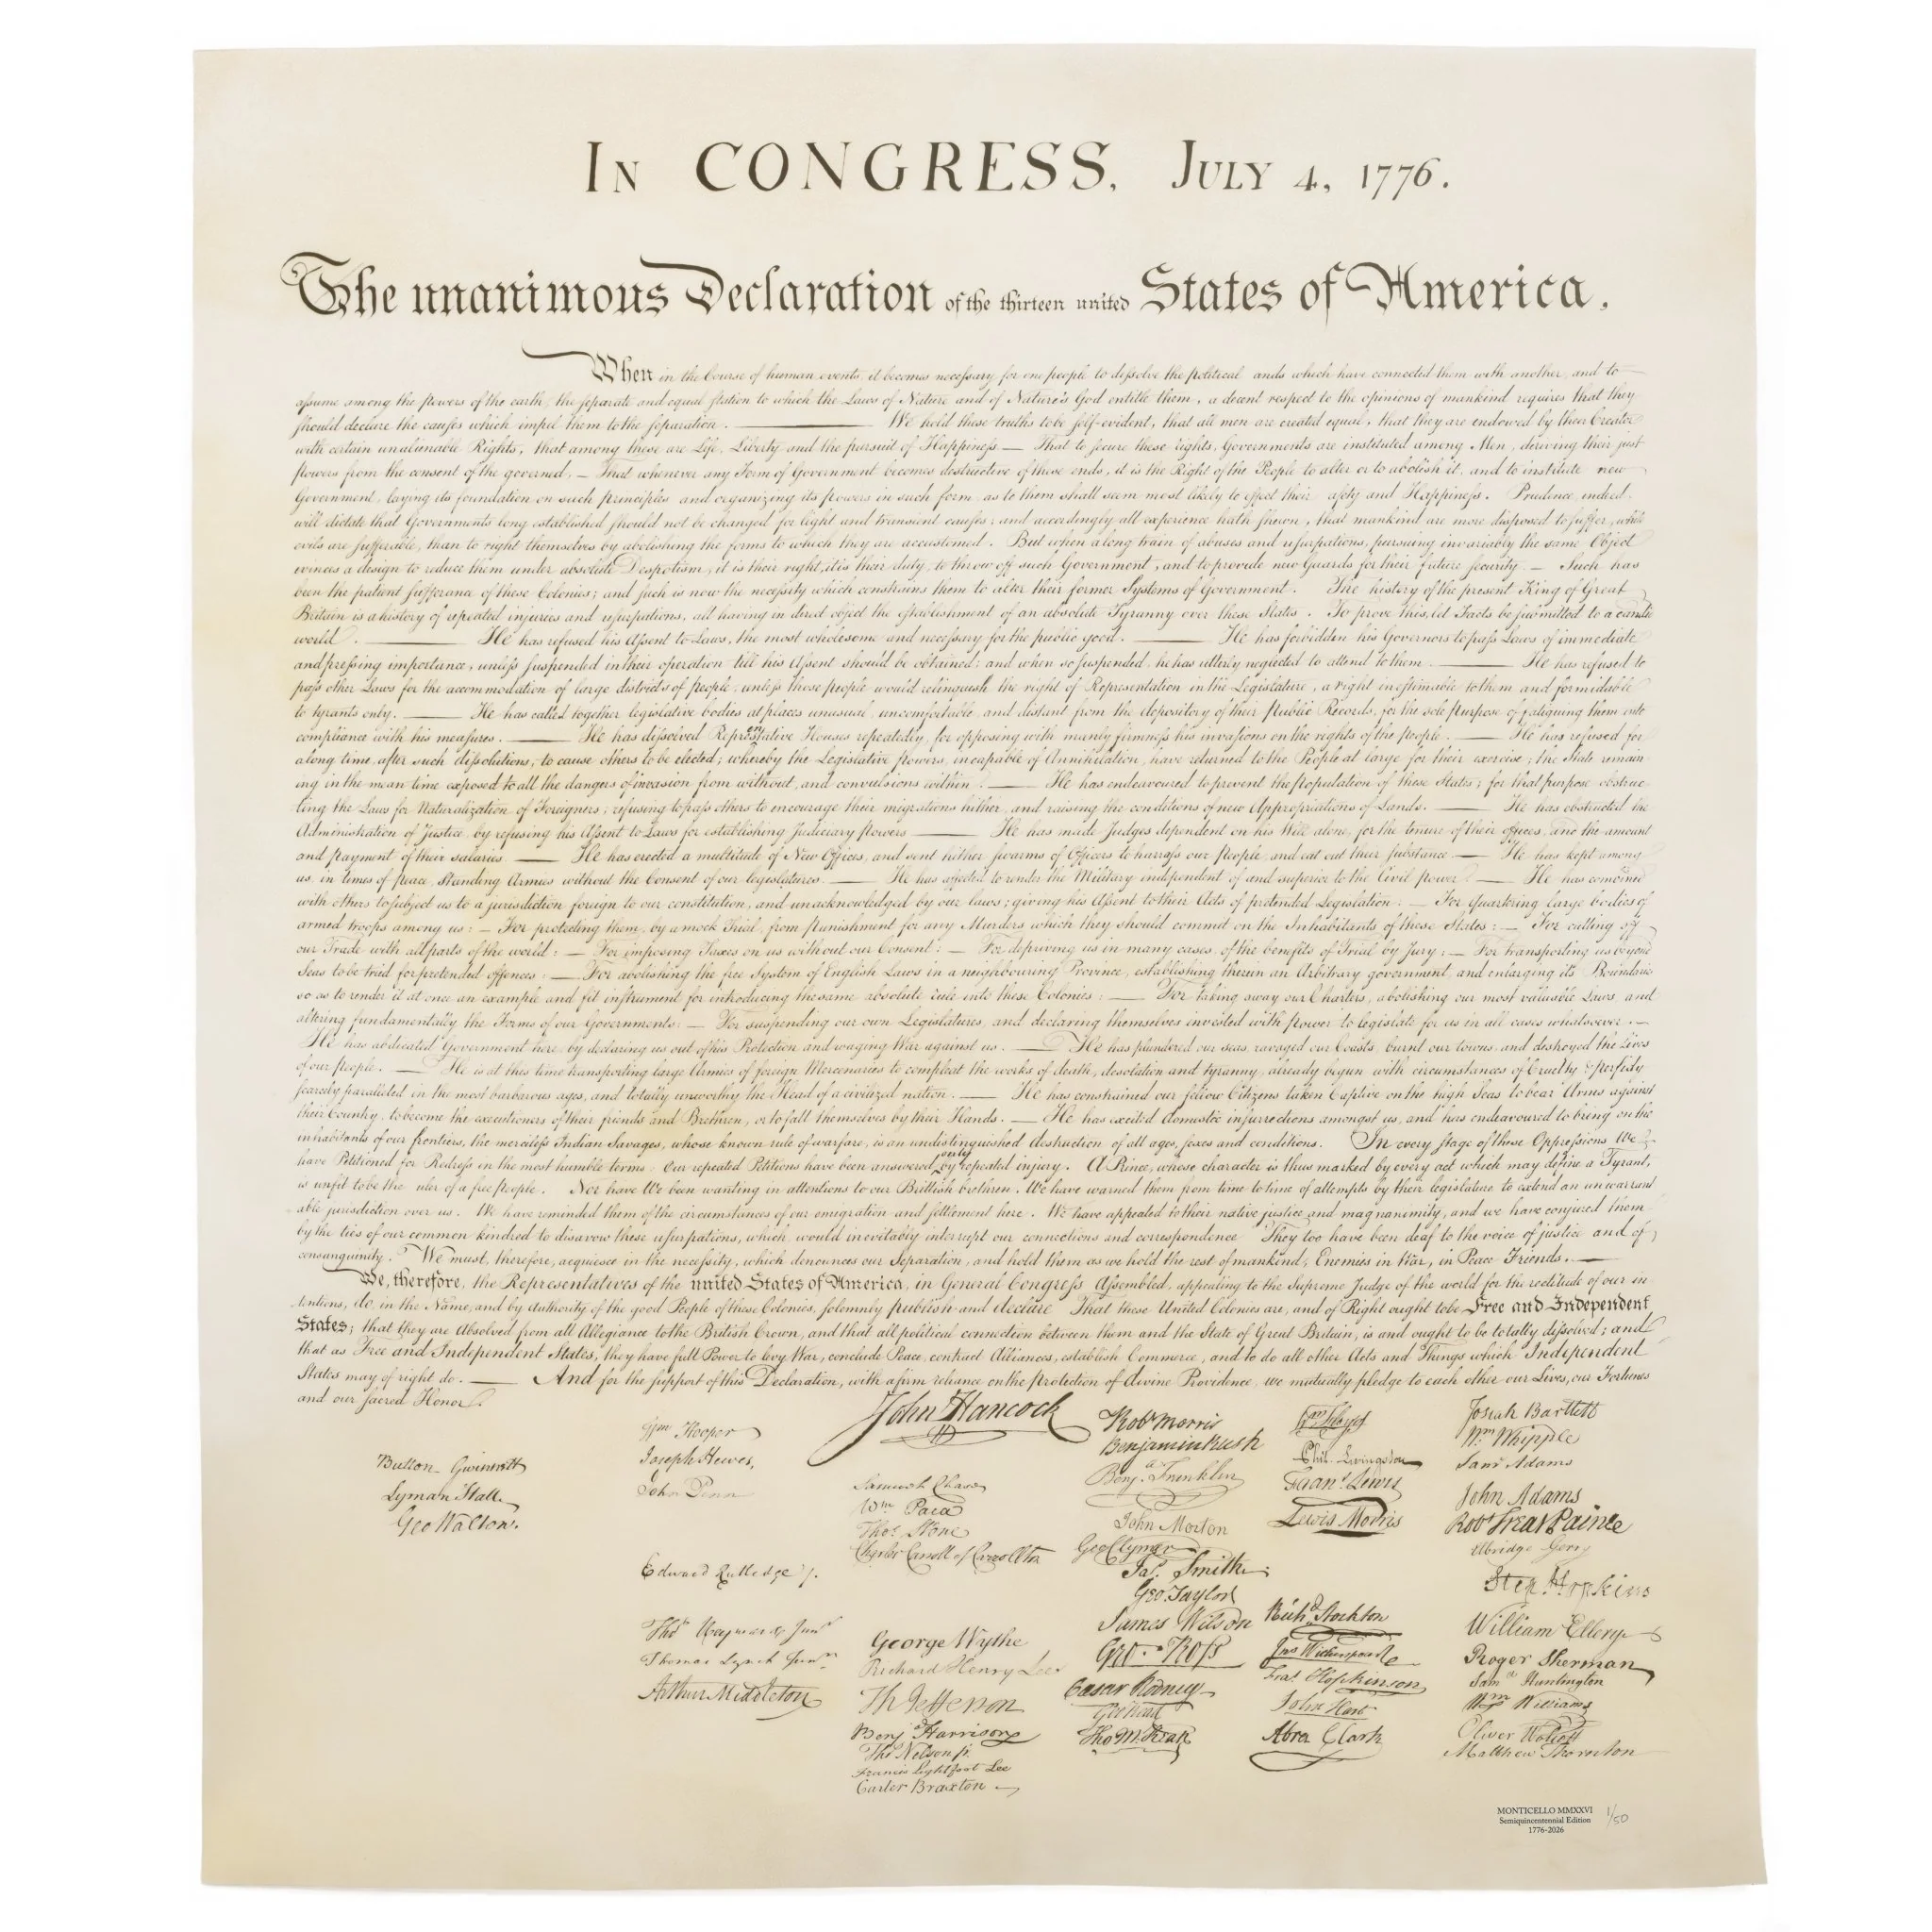 In CONGRESS, July 4, 1776.
The unanimous Declaration of the thirteen united States of America,
When in the Course of human events, it becomes necessary for one people to dissolve the political ands which have connected them with another, and to
assume among the powers of the earth, the separate and equal station to which the Laws of Nature and of Nature's God entitle them, a decent respect to the opinions of mankind requires that they
should declare the causes which impel them to the separation. — We hold these truths to be self-evident, that all men are created equal, that they are endowed by their Creator
with certain unalienable Rights, that among these are Life, Liberty and the pursuit of Happiness — That to secure these rights, Governments are instituted among Men, deriving their just
powers from the consent of the governed, — That whenever any Form of Government becomes destructive of these ends, it is the Right of the People to alter or to abolish it, and to institute new
Government, laying its foundation on such principles and organizing its powers in such form, as to them shall seem most likely to effect their afety and Happiness. Prudence, indeed,
will dictate that Governments long established should not be changed for light and transient causes; and accordingly all experience hath shewn, that mankind are more disposed to suffer, while
evils are sufferable, than to right themselves by abolishing the forms to which they are accustomed. But when a long train of abuses and usurpations, pursuing invariably the same Object
evinces a design to reduce them under absolute Despotism, it is their right, it is their duty, to throw off such Government, and to provide new Guards for their future security. — Such has
been the patient sufferance of these Colonies; and such is now the necessity which constrains them to alter their former Systems of Government. The history of the present King of Great
Britain is a history of repeated injuries and usurpations, all having in direct object the establishment of an absolute Tyranny over these States. To prove this, let Facts be submitted to a candid
world. — He has refused his Assent to Laws, the most wholesome and necessary for the public good. — He has forbidden his Governors to pass Laws of immediate
and pressing importance, unless suspended in their operation till his Assent should be obtained; and when so suspended, he has utterly neglected to attend to them. — He has refused to
pass other Laws for the accommodation of large districts of people, unless those people would relinquish the right of Representation in the Legislature, a right inestimable to them and formidable
to tyrants only. — He has called together legislative bodies at places unusual, uncomfortable, and distant from the depository of their Public Records, for the sole purpose of fatiguing them into
compliance with his measures. — He has dissolved Representative Houses repeatedly, for opposing with manly firmness his invasions on the rights of the people. — He has refused for
a long time, after such dissolutions, to cause others to be elected; whereby the Legislative powers, incapable of Annihilation, have returned to the People at large for their exercise; the State remain
ing in the mean time exposed to all the dangers of invasion from without, and convulsions within. — He has endeavoured to prevent the population of these States; for that purpose obstruc
ting the Laws for Naturalization of Foreigners; refusing to pass others to encourage their migrations hither, and raising the conditions of new Appropriations of Lands. — He has obstructed the
Administration of Justice, by refusing his Assent to Laws for establishing Judiciary powers — He has made Judges dependent on his Will alone, for the tenure of their offices, and the amount
and payment of their salaries. — He has erected a multitude of New Offices, and sent hither swarms of Officers to harrass our people, and eat out their substance — He has kept among
us, in times of peace, Standing Armies without the Consent of our legislatures. — He has affected to render the Military independent of and superior to the Civil power. — He has combined
with others to subject us to a jurisdiction foreign to our constitution, and unacknowledged by our laws; giving his Assent to their Acts of pretended Legislation: — For Quartering large bodies of
armed troops among us: — For protecting them, by a mock Trial, from punishment for any Murders which they should commit on the Inhabitants of these States: — For cutting off
our Trade with all parts of the world: — For imposing Taxes on us without our Consent: — For depriving us in many cases, of the benefits of Trial by Jury: — For transporting us beyond
Seas to be tried for pretended offences: — For abolishing the free System of English Laws in a neighbouring Province, establishing therein an Arbitrary government, and enlarging its Boundaries
so as to render it at once an example and fit instrument for introducing the same absolute rule into these Colonies: — For taking away our Charters, abolishing our most valuable Laws, and
altering fundamentally the Forms of our Governments: — For suspending our own Legislatures, and declaring themselves invested with power to legislate for us in all cases whatsoever. —
He has abdicated Government here, by declaring us out of his Protection and waging War against us. — He has plundered our seas, ravaged our Coasts, burnt our towns, and destroyed the Lives
of our people. — He is at this time transporting large Armies of foreign Mercenaries to compleat the works of death, desolation and tyranny, already begun with circumstances of Cruelty & perfidy
scarcely paralleled in the most barbarous ages, and totally unworthy the Head of a civilized nation. — He has constrained our fellow Citizens taken Captive on the high Seas to bear Arms against
their Country, to become the executioners of their friends and Brethren, or to fall themselves by their Hands. — He has excited domestic insurrections amongst us, and has endeavoured to bring on the
inhabitants of our frontiers, the merciless Indian Savages, whose known rule of warfare, is an undistinguished destruction of all ages, sexes and conditions. In every stage of these Oppressions We
have Petitioned for Redress in the most humble terms: Our repeated Petitions have been answered only by repeated injury. A Prince, whose character is thus marked by every act which may define a Tyrant,
is unfit to be the uler of a free people. Nor have We been wanting in attentions to our Brittish brethren. We have warned them from time to time of attempts by their legislature to extend an unwarrant
able jurisdiction over us. We have reminded them of the circumstances of our emigration and settlement here. We have appealed to their native justice and magnanimity, and we have conjured them
by the ties of our common kindred to disavow these usurpations, which, would inevitably interrupt our connections and correspondence They too have been deaf to the voice of justice and of
consanguinity. We must, therefore, acquiesce in the necessity, which denounces our Separation, and hold them, as we hold the rest of mankind, Enemies in War, in Peace Friends. —
We, therefore, the Representatives of the united States of America, in General Congress, Assembled, appealing to the Supreme Judge of the world for the rectitude of our in
tentions, do, in the Name, and by Authority of the good People of these Colonies, solemnly publish and declare That these United Colonies are, and of Right ought to be Free and Independent
States; that they are Absolved from all Allegiance to the British Crown, and that all political connection between them and the State of Great Britain, is and ought to be totally dissolved; and
that as Free and Independent States, they have full Power to levy War, conclude Peace, contract Alliances, establish Commerce, and to do all other Acts and Things which Independent
States may of right do. — And for the support of this Declaration, with a firm reliance on the Protection of divine Providence, we mutually pledge to each other our Lives, our Fortunes
and our sacred Honor.
Button Gwinnett
Lyman Hall
Geo Walton.
Wm Hooper
Joseph Hewes,
John Penn
Edward Rutledge /.
Thos Heyward Junr
Thomas Lynch Junr
Arthur Middleton
John Hancock
Samuel Chase
Wm Paca
Thos Stone
Charles Carroll of Carrollton
George Wythe
Richard Henry Lee
Th Jefferson
Benj Harrison
Thos Nelson jr.
Francis Lightfoot Lee
Carter Braxton
Robt Morris
Benjamin Rush
Benj. Franklin
John Morton
Geo Clymer
Jas. Smith
Geo. Taylor
James Wilson
Geo. Ross
Caesar Rodney
Geo Read
Tho M:Kean
Phil. Livingston
Frans. Lewis
Lewis Morris
Richd. Stockton
Jno Witherspoon
Fras. Hopkinson
John Hart
Abra Clark
Josiah Bartlett
Wm Whipple
Saml Adams
John Adams
Robt Treat Paine
Elbridge Gerry
Step. Hopkins
William Ellery
Roger Sherman
Saml Huntington
Wm Williams
Oliver Wolcott
Matthew Thornton
MONTICELLO MMXXVI
Semiquincentennial Edition
1776-2026
1/50